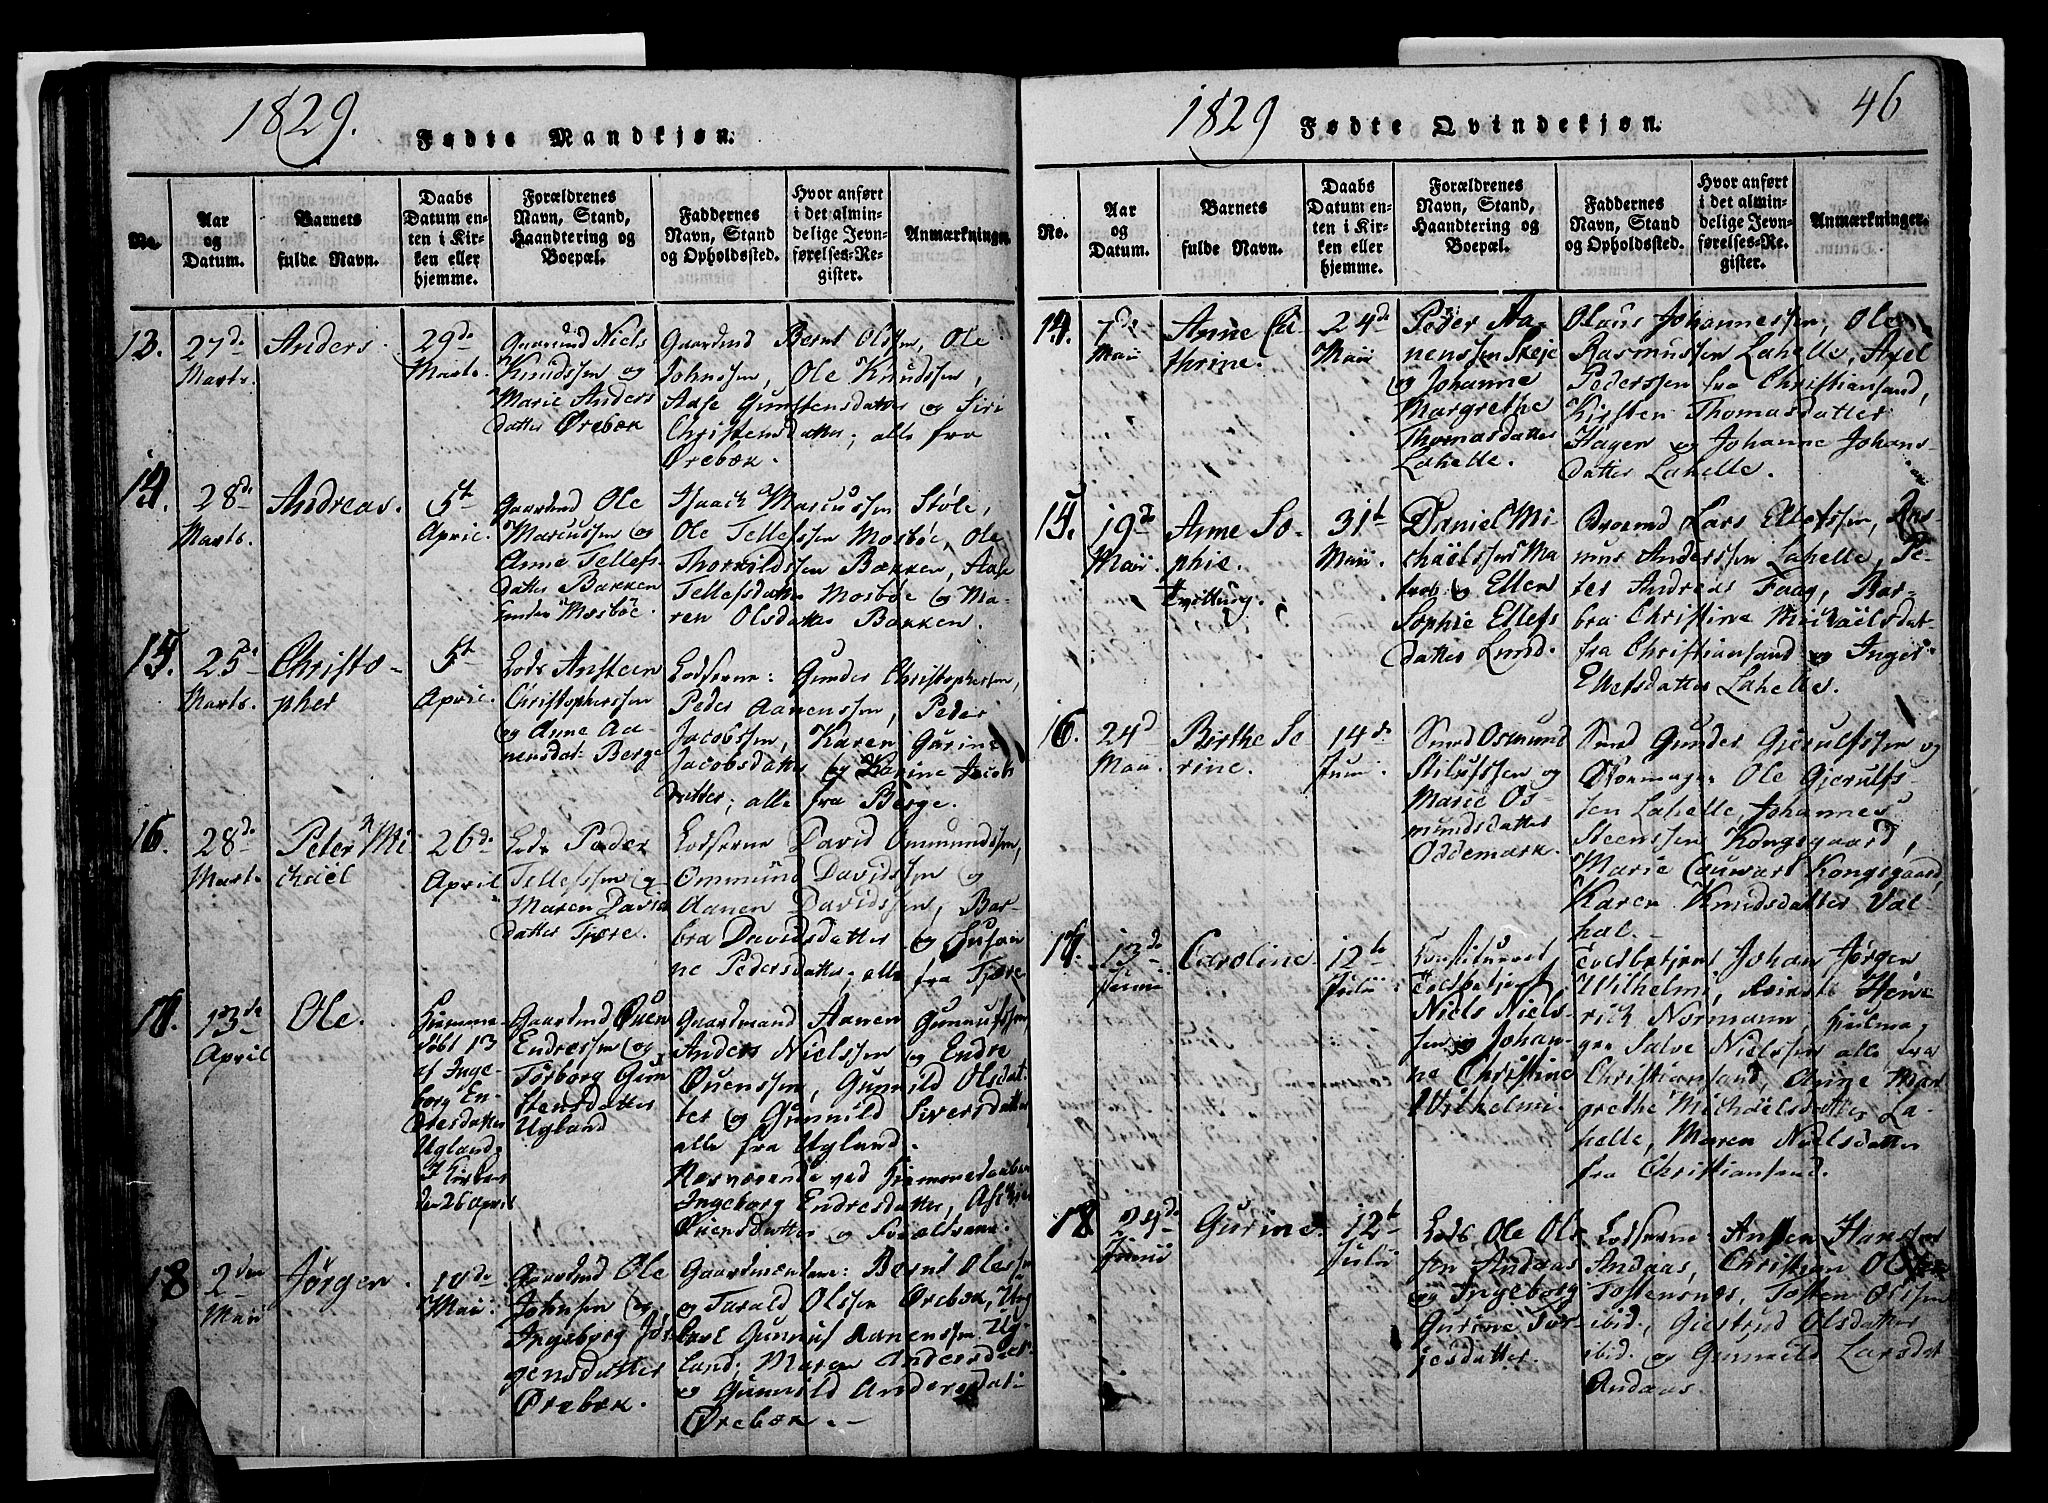 1829.
Fødte Mandkjøn.
No.
Aar
og
Datum.
Barnets
fulde Navn.
Daabs
Datum en-
ten i Kir-
ken eller
hjemme.
Forældrenes
Navn, Stand,
Haandtering og
Boepæl.
Faddernes
Navn, Stand
og Opholdssted.
Hvor anført
i det almin-
delige Jevn-
førelses-Re-
gister.
Anmærkninger.
13.
27de
Marts.
Anders.
29de
Marts.
Gaardmd Niels
Knudssen og
Marie Anders
datter Ørebæk
Gaardmd Bernt Olssen, Ole
Johnssen, Ole Knudssen,
Aase Gunstensdatter og Siri
Christensdatter, alle fra
Ørebæk.
14.
28de
Marts.
Andreas.
5te
April.
Gaardmd Ole
Marcussen og
Anne Tellefs
datter Bakken
under Mosbøe.
Isaach Marcussen Støle,
Ole Tellefssen Mosbøe, Ole
Thorkildssen Bakken, Aase
Tellefsdatter Mosbøe og Ma-
ren Olsdatter Bakken.
15.
25de
Marts.
Christo-
pher
5te
April.
Lods Ansteen
Christopherssen
og Anne Aa-
nensdat: Berge
Lodserne: Gunder Christophersen,
Peder Aanenssen, Peder
Jacobssen, Karen Gurine
Jacobsdatter og Karine Jacob
datter, alle fra Berge.
16.
28de
Marts.
Peter Mi
chael
26de
April
Lods Peder
Tellefssen og
Maren David
datter Tjøre.
Lodserne David Ommundssen,
Ommund Davidssen og
Aanen Davidssen, Bar-
bra Davidsdatter og Susan
ne Pedersdatter, alle fra Tjøre
17.
13de
April
Ole.
Hjemme
døbt 13
af Inge-
borg En-
dresdatter
Ugland.
I Kirken
den 26 april
Gaardmd Ouen
Endressen og
Torborg Gun
stensdatter
Ugland
Gaardmand Aanen Gunnufssen,
Anders Nielssen og Endre
Ouenssen, Gunnild Olsdat-
ter og Gunnild Siversdatter
alle fra Ugland.
Nærværende ved Hjemmedaaben
Ingeborg Endresdatter,
Ouensdatter og Forældrene.
18
2den
Maii
Jørgen.
17de
Maii.
Gaardmd Ole
Johnsen og
Ingeborg Jør
gensdatter
Ørebæk.
Gaardmændene: Bernt Olessen
og Tarald Olssen Ørebæk, Ung
karl Gunnuf Aanenssen Ug-
land, Maren Andersdatter
og Gunnild Andersdat:
Ørebæk.
1829
Fødte Qvindekjøn.
46
No.
Aar
og
Datum.
Barnets
fulde Navn.
Daabs
Datum en-
ten i Kir-
ken eller
hjemme.
Forældrenes
Navn, Stand,
Haandtering og
Boepæl.
Faddernes
Navn, Stand
og Opholdssted.
Hvor anført
i det almin-
delige Jevn-
førelses-Re-
gister.
Anmærkninger.
14.
7de
Maii
Anne Ca-
thrine.
24de
Maii
Peder Aa-
nenssen Skeje
og Johanne
Margrethe
Thomasdatter
Lahelle.
Olaus Johannessen, Ole
Rasmussen Lahelle, Axel
Pederssen fra Christiansand,
Kirsten Thomasdatter
Hagen og Johanne Johans-
datter Lahelle.
15.
19de
Maii
Anne So-
phie.
Tvilling.
31te
Maii
Daniel Mi-
chaelssen Ma-
tros og Ellen
Sophie Ellefs
datter Lund.
Lars Ellefssen, Ras-
mus Anderssen Lahelle, Pe-
ter Andreas Faag, Bar-
bra Christine Michaelsdat-
fra Christiansand og Inger
Ellefsdatter Lahelle.
16.
24d
Maii
Birthe Se
rine.
14de
Junii
Smed Osmund
Stilufssen og
Marie Os-
mundsdatter
Oddemark.
Smed Gunder Gjerulfssen og
Ole Gjerulfs-
sen Lahelle, Johannes
Steenssen Kongsgaard,
Marie Cauwart Kongsgaard,
Karen Knudsdatter Val
hal.
17.
13de
Junii
Caroline
12te
Julii
Constitueret
Toldbetjent
Niels Niels-
sen og Johan-
ne Christine
Wilhelmi.
Toldbetjent Johan Jørgen
Wilhelmi, Hen-
rich Normann,
Salve Nielssen alle fra
Christiansand, Anne Mar
grethe Michaelsdatter La-
helle, Maren Nielsdatter
fra Christiansand.
18
24de
Junii
Gurine.
12te
Julii
Lods Ole Ols
sen Andaas
og Ingeborg
Gurine Tor-
jesdatter.
Lodserne Hanssen
Andaas, Christian Olssen
Tostensnes, Tosten Olssen
ibid., Giertrud Olsdatter
ibid. og Gunnild Larsdat
Andaas.